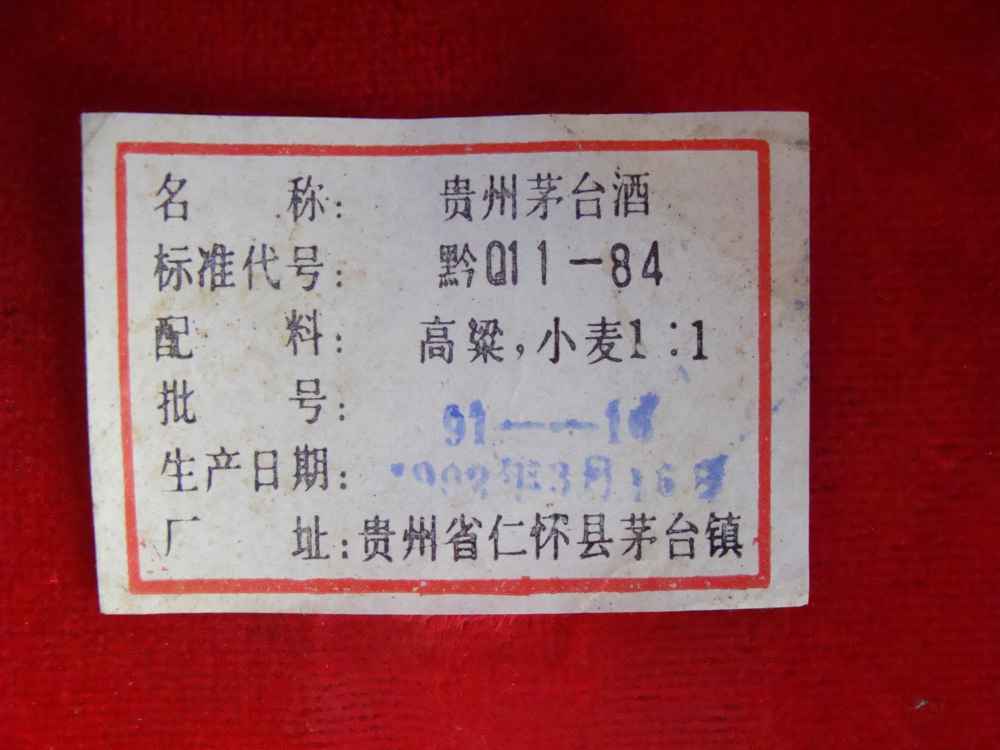 名 称: 贵州茅台酒
标准代号: 黔Q11-84
配 料: 高粱,小麦1:1
批 号: 91——1
生产日期: 1992年3月16日
厂 址:贵州省仁怀县茅台镇